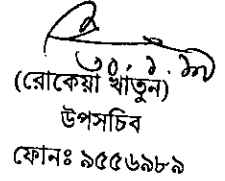 (রোকেয়া খাতুন)
উপসচিব
ফোনঃ ৯৫৫৬৯৮৯